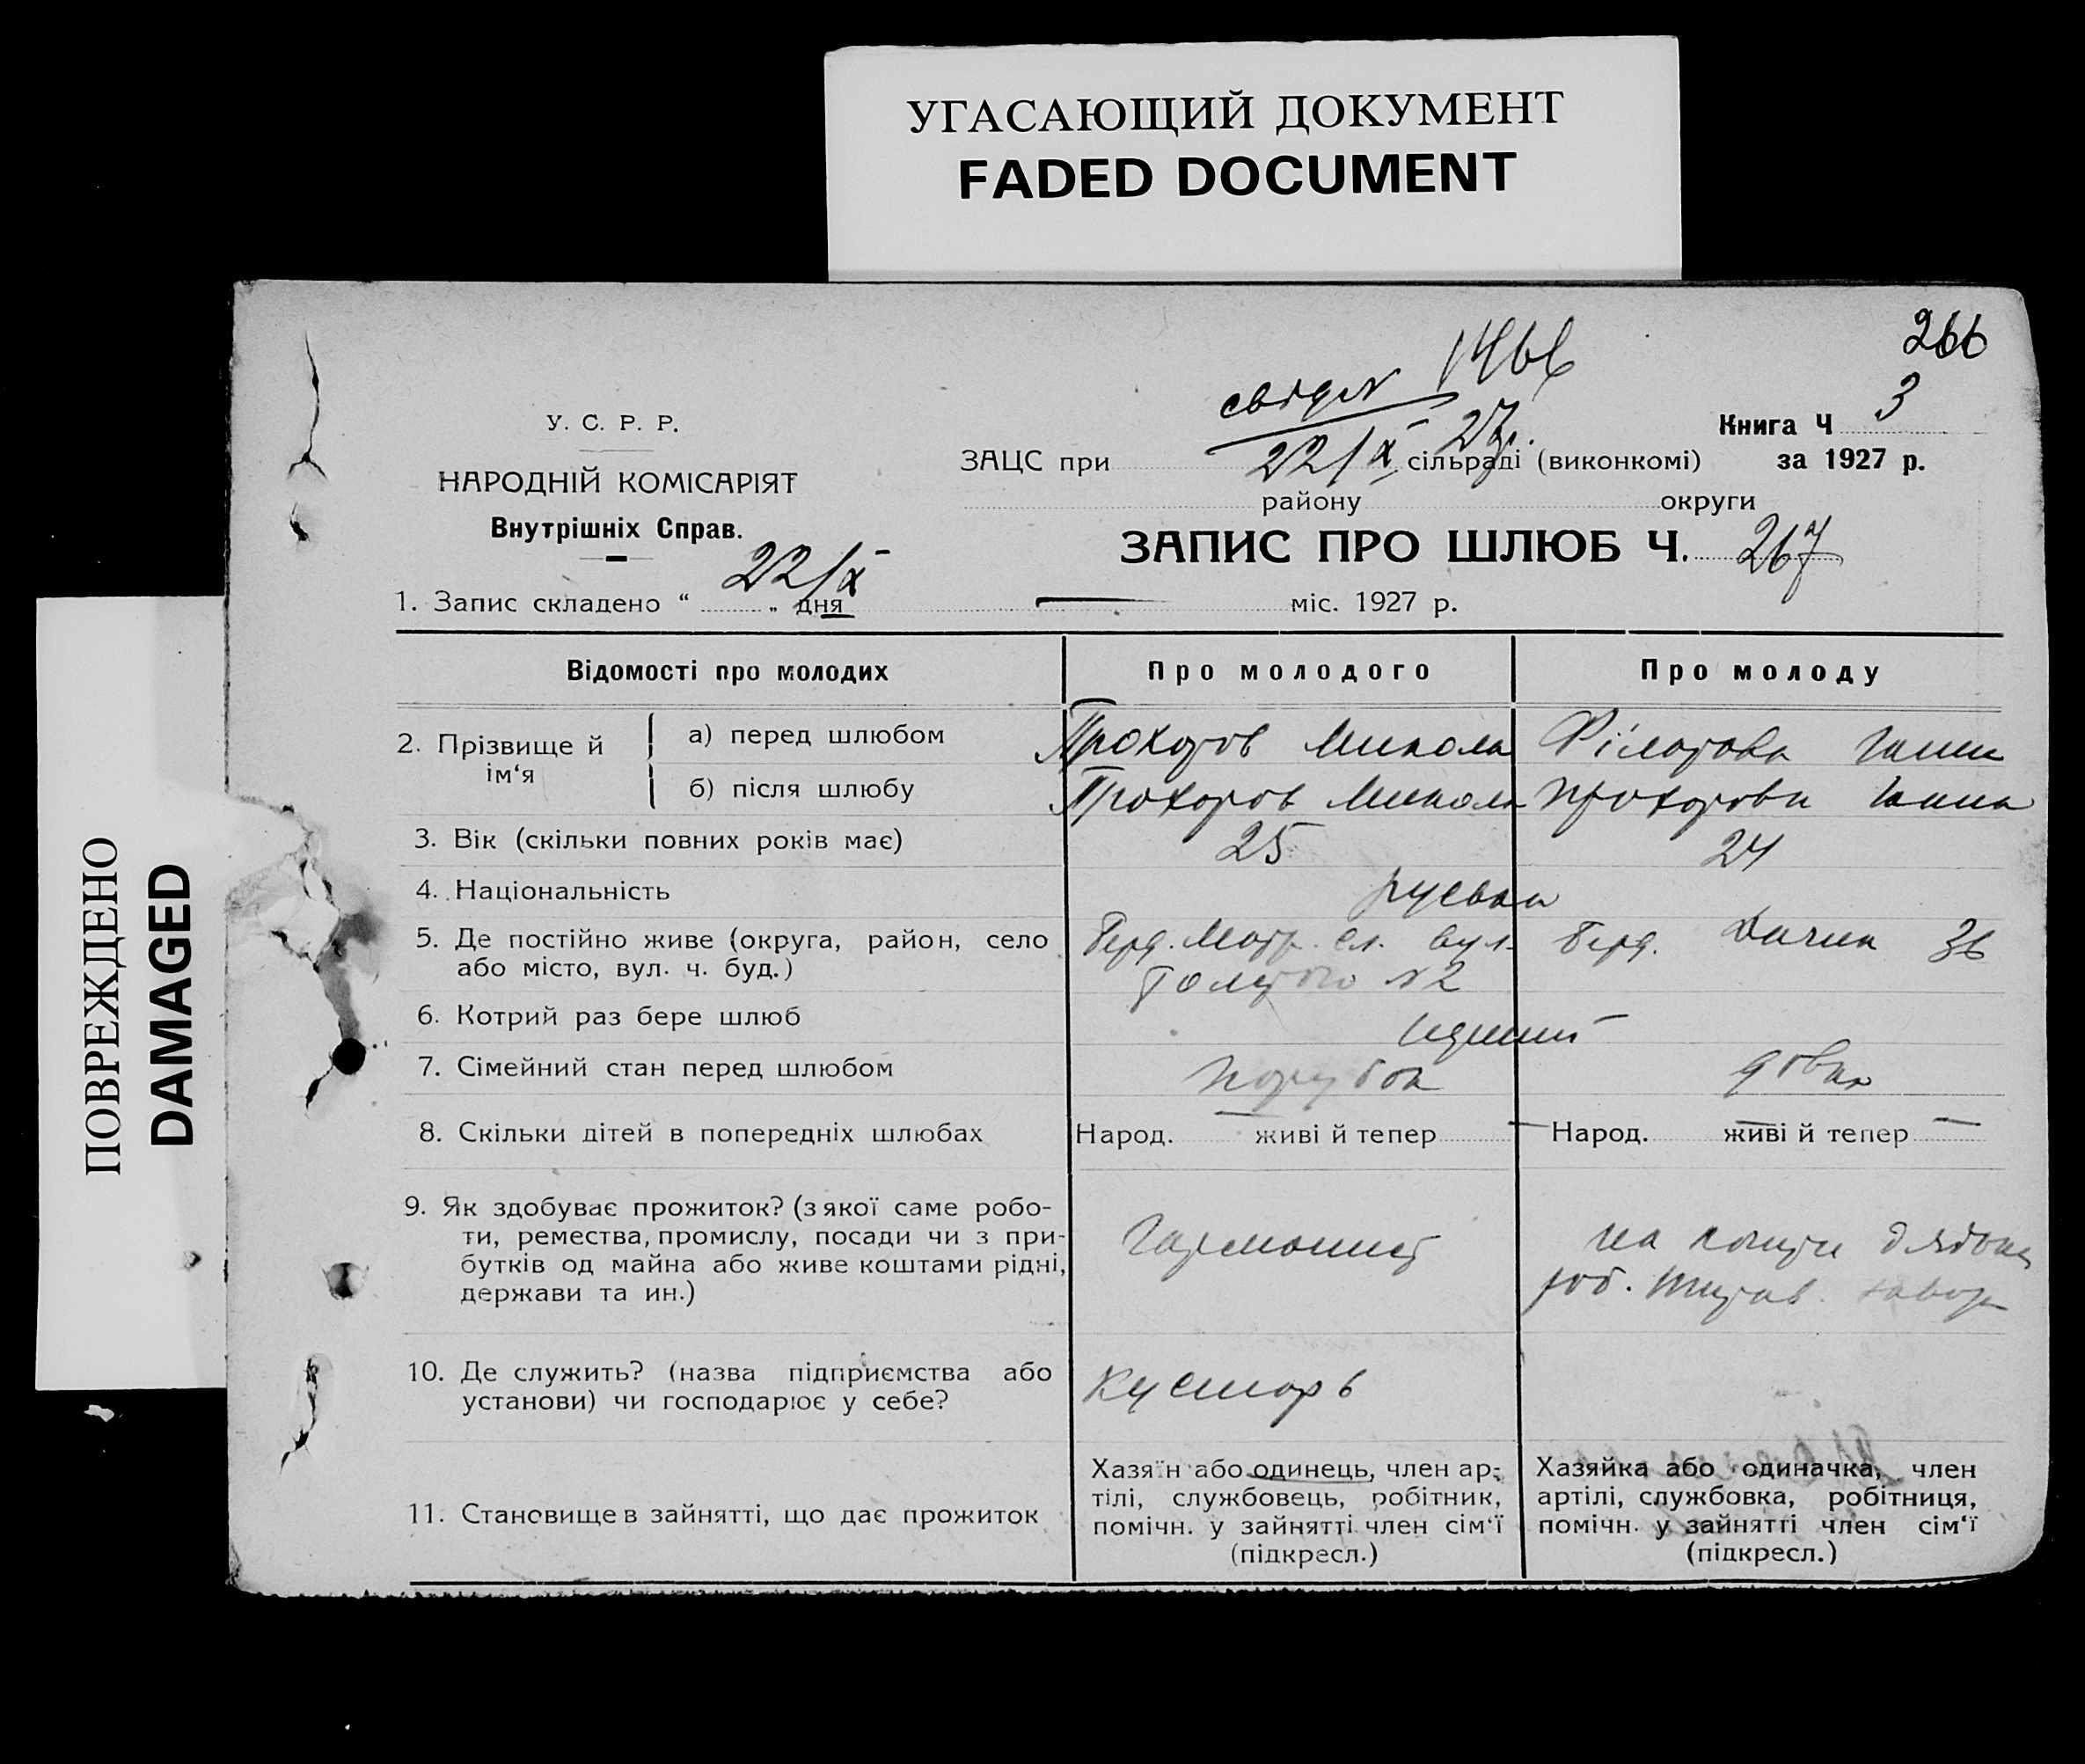 УГАСАЮЩИЙ ДОКУМЕНТ
FADED DOCUMENT
ПОВРЕЖДЕНО
DAMAGED
266
1466
22/X 27р.
У. С. Р. Р.
НАРОДНІЙ КОМІСАРІЯТ
Внутрішніх Справ.
Книга Ч 3
ЗАЦС при сільраді (виконкомі) за 1927 р.
району округи
ЗАПИС ПРО ШЛЮБ Ч. 267
22/X
1. Запис складено “ „ дня міс. 1927 р.
Відомості про молодих Про молодого Про молоду
2. Прізвище й ім‘я
а) перед шлюбом Прохоров Микола Філатова Ганна
б) після шлюбу Прохоров Микола Прохорова Ганна
3. Вік (скільки повних років має) 25 24
4. Національність руськи
5. Де постійно живе (округа, район, село Берд. сл. вул. Берд. Дачна 36
або місто, вул. ч. буд.) Толстого №2
6. Котрий раз бере шлюб
7. Сімейний стан перед шлюбом парубок дівка
8. Скільки дітей в попередніх шлюбах Народ. живі й тепер — Народ. живі й тепер —
9. Як здобуває прожиток? (з якої саме робо-
ти, ремества, промислу, посади чи з при-
бутків од майна або живе коштами рідні,
держави та ин.)
Гармонист
на кошти
роб.
10. Де служить? (назва підприємства або
установи) чи господарює у себе?
Кустарь
11. Становище в зайнятті, що дає прожиток
Хазяїн або одинець, член ар-
тілі, службовець, робітник,
помічн. у зайнятті член сім‘ї
(підкресл.)
Хазяйка або одиначка, член
артілі, службовка, робітниця,
помічн. у зайнятті член сім‘ї
(підкресл.)